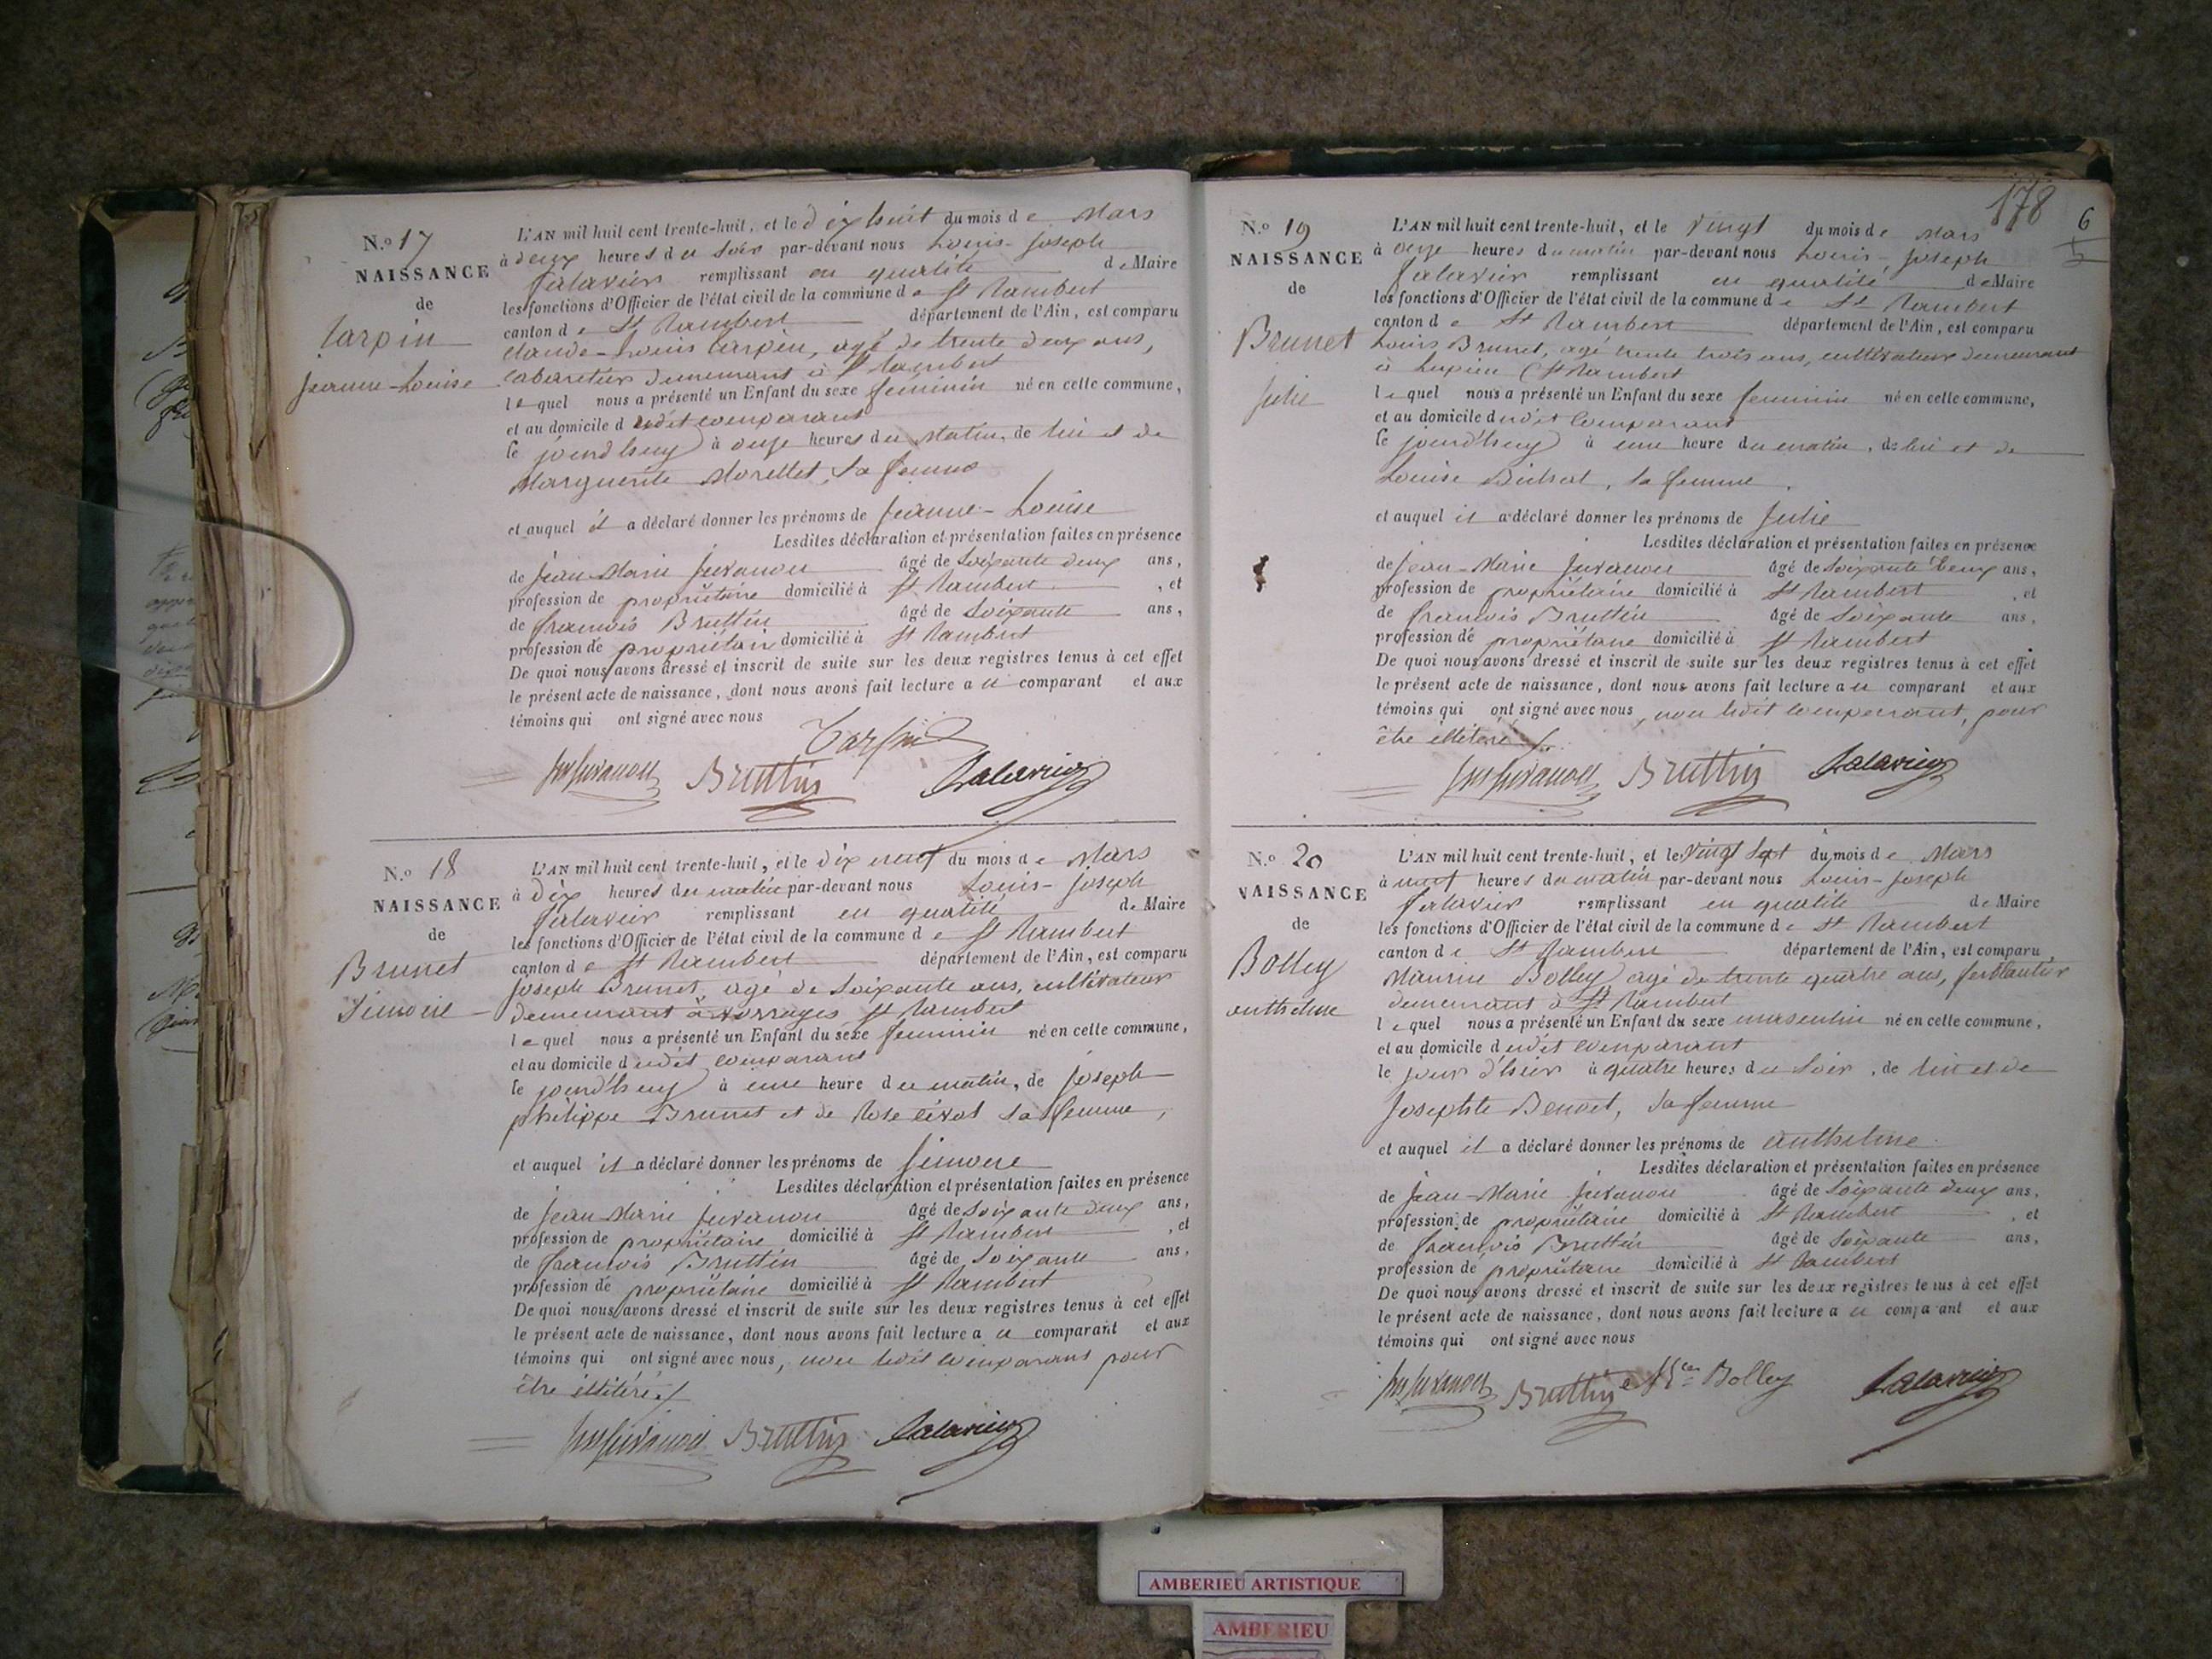 N.º 17
NAISSANCE
de
Tarpin
Jeanne-Louise
L'AN mil huit cent trente-huit, et le dix huit du mois de Mars
à deux heures du soir par-devant nous Louis-Joseph
Falavier remplissant en qualité de Maire
les fonctions d'Officier de l'état civil de la commune de St Rambert
canton de St Rambert département de l'Ain, est comparu
claude-Louis Tarpin, agé de trente deux ans,
cabaretier demeurant à St Rambert
lequel nous a présenté un Enfant du sexe feminin né en cette commune,
et au domicile dudit comparant
le jourd'huy à onze heures du Matin, de lui et de
Marguerite Morettet, sa femme
et auquel il a déclaré donner les prénoms de Jeanne-Louise
Lesdites déclaration et présentation faites en présence
de Jean-Marie Juvanon âgé de soixante deux ans,
profession de propriétaire domicilié à St Rambert, et
de françois Bruttin âgé de soixante ans,
profession de propriétaire domicilié à St Rambert
De quoi nous avons dressé et inscrit de suite sur les deux registres tenus à cet effet
le présent acte de naissance, dont nous avons fait lecture au comparant et aux
témoins qui ont signé avec nous
Tarpin
Juvanon Bruttin Falavier
N.º 18
NAISSANCE
de
Brunet
Simone
L'AN mil huit cent trente-huit, et le dix neuf du mois de Mars
à dix heures du matin par-devant nous Louis-Joseph
Falavier remplissant en qualité de Maire
les fonctions d'Officier de l'état civil de la commune de St Rambert
canton de St Rambert département de l'Ain, est comparu
Joseph Brunet, agé de soixante ans, cultivateur
demeurant à St Rambert
lequel nous a présenté un Enfant du sexe feminin né en cette commune,
et au domicile dudit comparant
le jourd'huy à une heure du matin, de Joseph
philippe Brunet et de Rose sa femme,
et auquel il a déclaré donner les prénoms de Simone
Lesdites déclaration et présentation faites en présence
de Jean-Marie Juvanon âgé de soixante deux ans,
profession de propriétaire domicilié à St Rambert, et
de françois Bruttin âgé de soixante ans,
profession de propriétaire domicilié à St Rambert
De quoi nous avons dressé et inscrit de suite sur les deux registres tenus à cet effet
le présent acte de naissance, dont nous avons fait lecture au comparant et aux
témoins qui ont signé avec nous, non ledit comparant pour
être illitéré
Juvanon Bruttin Falavier
178
6
N.º 19
NAISSANCE
de
Brunet
Julie
L'AN mil huit cent trente-huit, et le vingt du mois de Mars
à onze heures du matin par-devant nous Louis-Joseph
Falavier remplissant en qualité de Maire
les fonctions d'Officier de l'état civil de la commune de St Rambert
canton de St Rambert département de l'Ain, est comparu
Louis Brunet, agé trente trois ans, cultivateur demeurant
à Lupieu (St Rambert
lequel nous a présenté un Enfant du sexe feminin né en cette commune,
et au domicile dudit comparant
le jourd'huy à une heure du matin, de lui et de
Louise sa femme.
et auquel il a déclaré donner les prénoms de Julie
Lesdites déclaration et présentation faites en présence
de Jean-Marie Juvanon âgé de soixante deux ans,
profession de propriétaire domicilié à St Rambert, et
de françois Bruttin âgé de soixante ans,
profession de propriétaire domicilié à St Rambert
De quoi nous avons dressé et inscrit de suite sur les deux registres tenus à cet effet
le présent acte de naissance, dont nous avons fait lecture au comparant et aux
témoins qui ont signé avec nous, non ledit comparant, pour
être illitéré
Juvanon Bruttin Falavier
N.º 20
NAISSANCE
de
Bolley
anthelme
L'AN mil huit cent trente-huit, et le vingt sept du mois de Mars
à neuf heures du matin par-devant nous Louis-Joseph
Falavier remplissant en qualité de Maire
les fonctions d'Officier de l'état civil de la commune de St Rambert
canton de St Rambert département de l'Ain, est comparu
Maurice Bolley, agé de trente quatre ans, ferblantier
demeurant à St Rambert
lequel nous a présenté un Enfant du sexe masculin né en cette commune,
et au domicile dudit comparant
le jour d'hier à quatre heures du soir, de lui et de
Josephte Benoit, sa femme
et auquel il a déclaré donner les prénoms de anthelme
Lesdites déclaration et présentation faites en présence
de Jean-Marie Juvanon âgé de soixante deux ans,
profession de propriétaire domicilié à St Rambert, et
de françois Bruttin âgé de soixante ans,
profession de propriétaire domicilié à St Rambert
De quoi nous avons dressé et inscrit de suite sur les deux registres tenus à cet effet
le présent acte de naissance, dont nous avons fait lecture au comparant et aux
témoins qui ont signé avec nous
Juvanon Bruttin Mce Bolley Falavier
AMBERIEU ARTISTIQUE
AMBERIEU